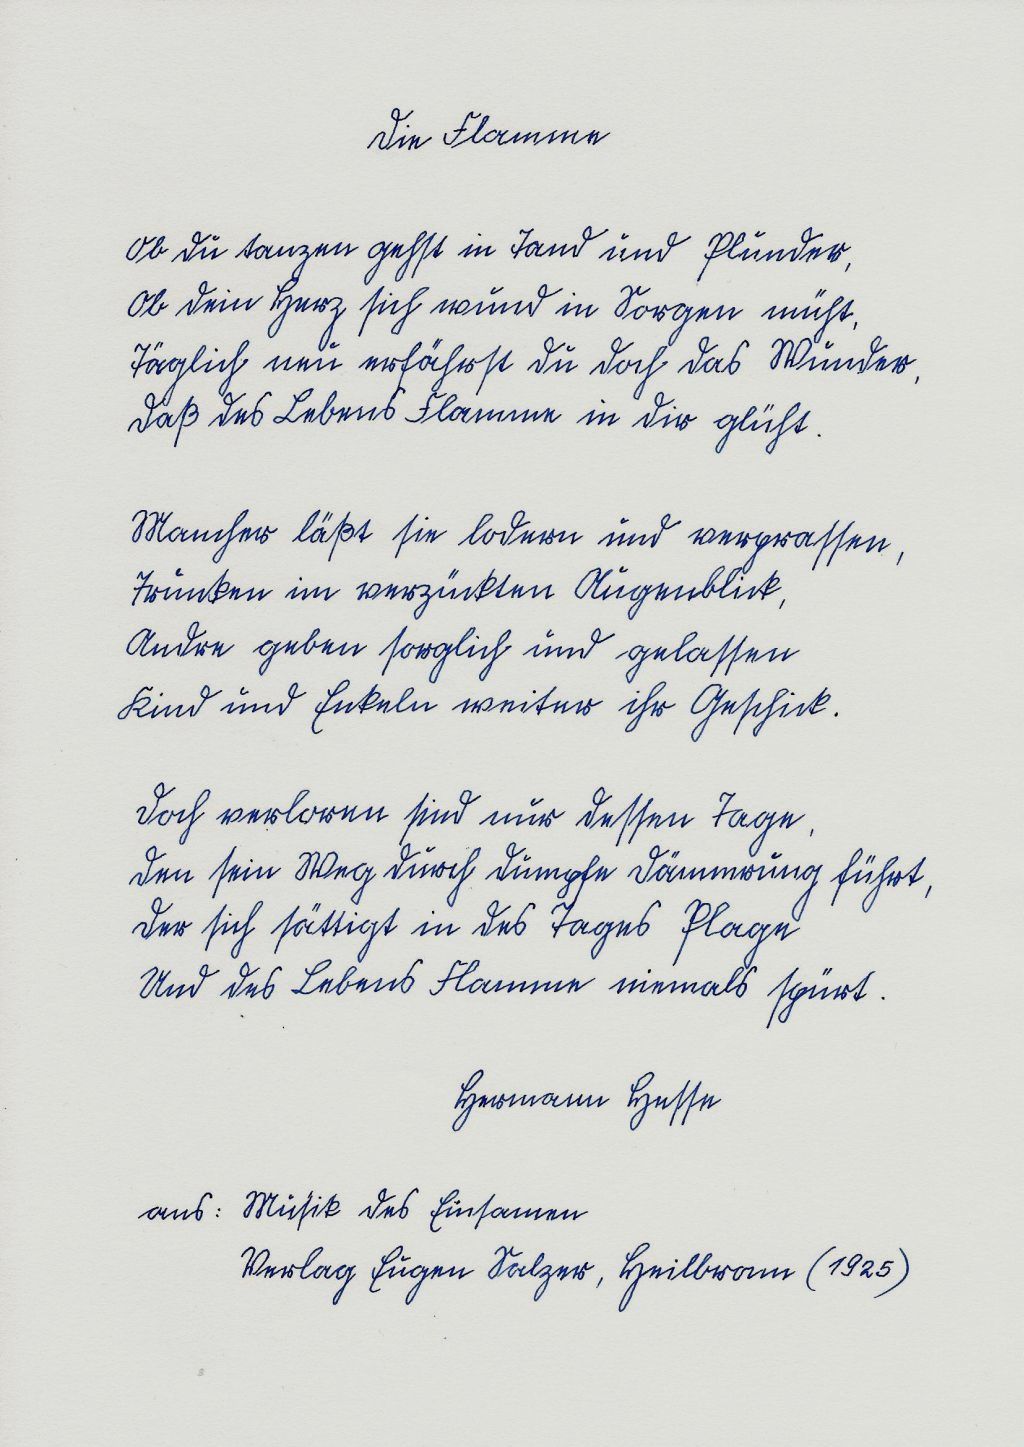 Die Flamme
Ob du tanzen gehst in Tand und Plunder,
Ob dein Herz sich wund in Sorgen müht,
Täglich neu erfährst du doch das Wunder,
Daß des Lebens Flamme in dir glüht.
Mancher läßt sie lodern und verprassen,
Trunken im verzückten Augenblick,
Andre geben sorglich und gelassen
Kind und Enkeln weiter ihr Geschick.
Doch verloren sind nur dessen Tage,
Den sein Weg durch dumpfe Dämmrung führt,
Der sich sättigt in des Tages Plage
Und des Lebens Flamme niemals spürt.
Hermann Hesse
aus: Musik des Einsamen
Verlag Eugen Salzer, Heilbronn (1925)